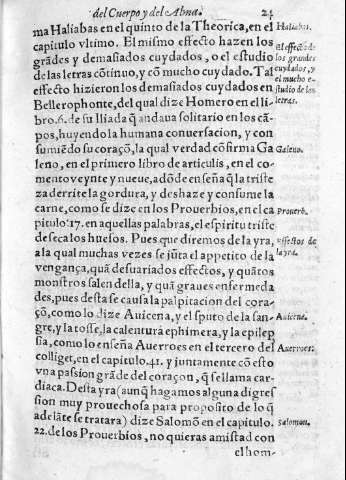 del Cuerpo y del Alma. 23
ma Haliabas en el quinto de la Theorica, en el
capitulo vltimo. El mismo effecto hazen los
grãdes y demasiados cuydados, o el estudio
de las letras cõtino, y cõ mucho cuydado. Tal
effecto hizieron los demasiados cuydados en
Bellerophonte, del qual dize Homero en el li
bro. 6. de su Iliada q̃ andaua solitario en los cã-
pos, huyendo la humana conuersacion, y con
sumiẽdo su coraçõ, la qual verdad cõfirma Ga
leno, en el primero libro de articulis, en el co-
mento veynte y nueue, adõde enseña q̃ la triste
za derrite la gordura, y deshaze y consume la
carne, como se dize en los Prouerbios, en el ca
pitulo. 17. en aquellas palabras, el espiritu triste
deseca los huesos. Pues que diremos de la yra,
a la qual muchas vezes se jũta el appetito de la
vengança, quã desuariados effectos, y quãtos
monstros salen della, y quã graues enfermeda
des, pues desta se causa la palpitacion del cora-
çõ, como lo dize Auicena, y el sputo de la san-
gre, y la tosse, la calentura ephimera, y la epilep
sia, como lo enseña Auerroes en el tercero del
colliget, en el capitulo. 41. y juntamente cõ esto
vna passion grãde del coraçon, q̃ se llama car-
diaca. Desta yra (aunq̃ hagamos alguna digres
sion muy prouechosa para proposito de lo q̃
adelãte se tratara) dize Salomõ en el capitulo.
22. de los Prouerbios, no quieras amistad con
el hom-
Haliabas.
El effecto de
los grandes
cuydados, y
el mucho e-
studio de las
letras.
Galeno.
Prouerb.
Effectos de
la yra.
Auicena.
Auerroes:
Salomon.